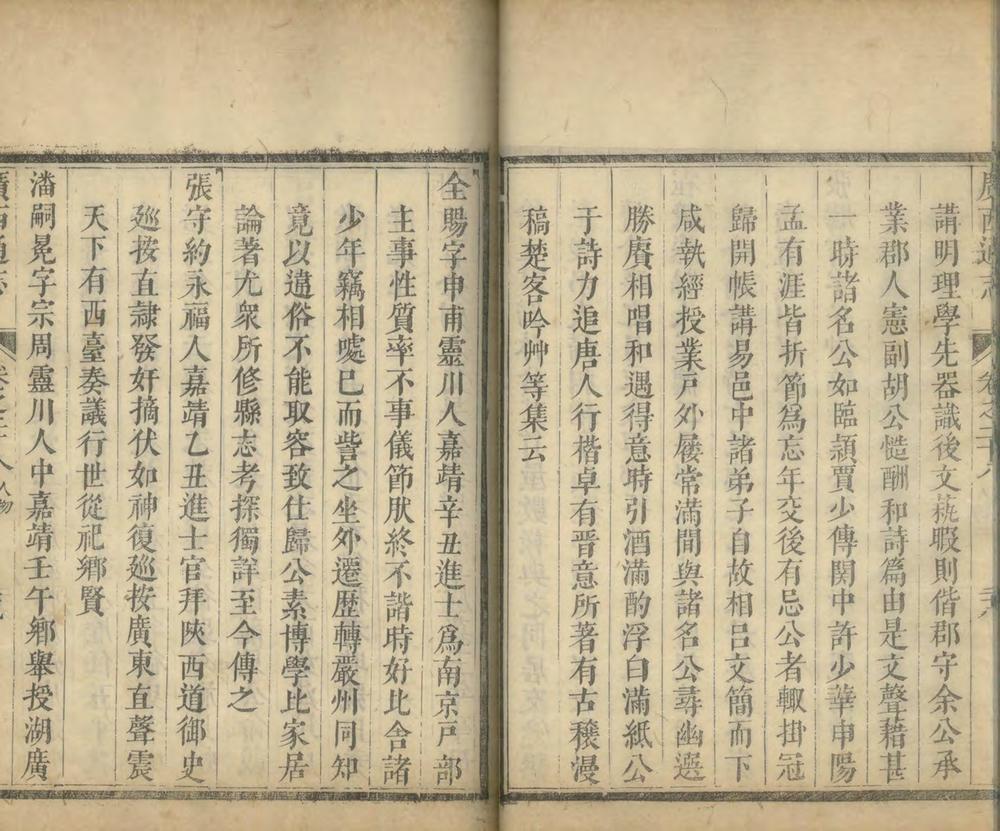 講明理學先器識後文蓺暇則偕郡守余公承
業郡人憲副胡公慥酬和詩篇由是文聲藉甚
一時諸名公如臨潁賈少傅関中許少華申陽
孟有涯皆折節爲忘年交後有忌公者輙掛冠
歸開帳講易邑中諸弟子自故相呂文簡而下
咸執經授業戸外屨常滿間與諸名公尋幽選
勝賡相唱和遇得意時引酒滿酌浮白滿紙公
于詩力追唐人行楷卓有晋意所著有古穰漫
稿楚客吟艸等集云
全賜字申甫靈川人嘉靖辛丑進士爲南京戸部
主事性質率不事儀節肰終不諧時好比舎諸
少年竊相噓已而訾之坐外遷歴轉嚴州同知
竟以違俗不能取容致仕歸公素博學比家居
論著尤衆所修縣志考探獨詳至今傳之
張守約永福人嘉靖乙丑進士官拜陝西道御史
廵按直隷發奸摘伏如神復廵按廣東直聲震
天下有西臺奏議行世從祀鄉賢
潘嗣冕字宗周靈川人中嘉靖壬午鄉舉授湖廣